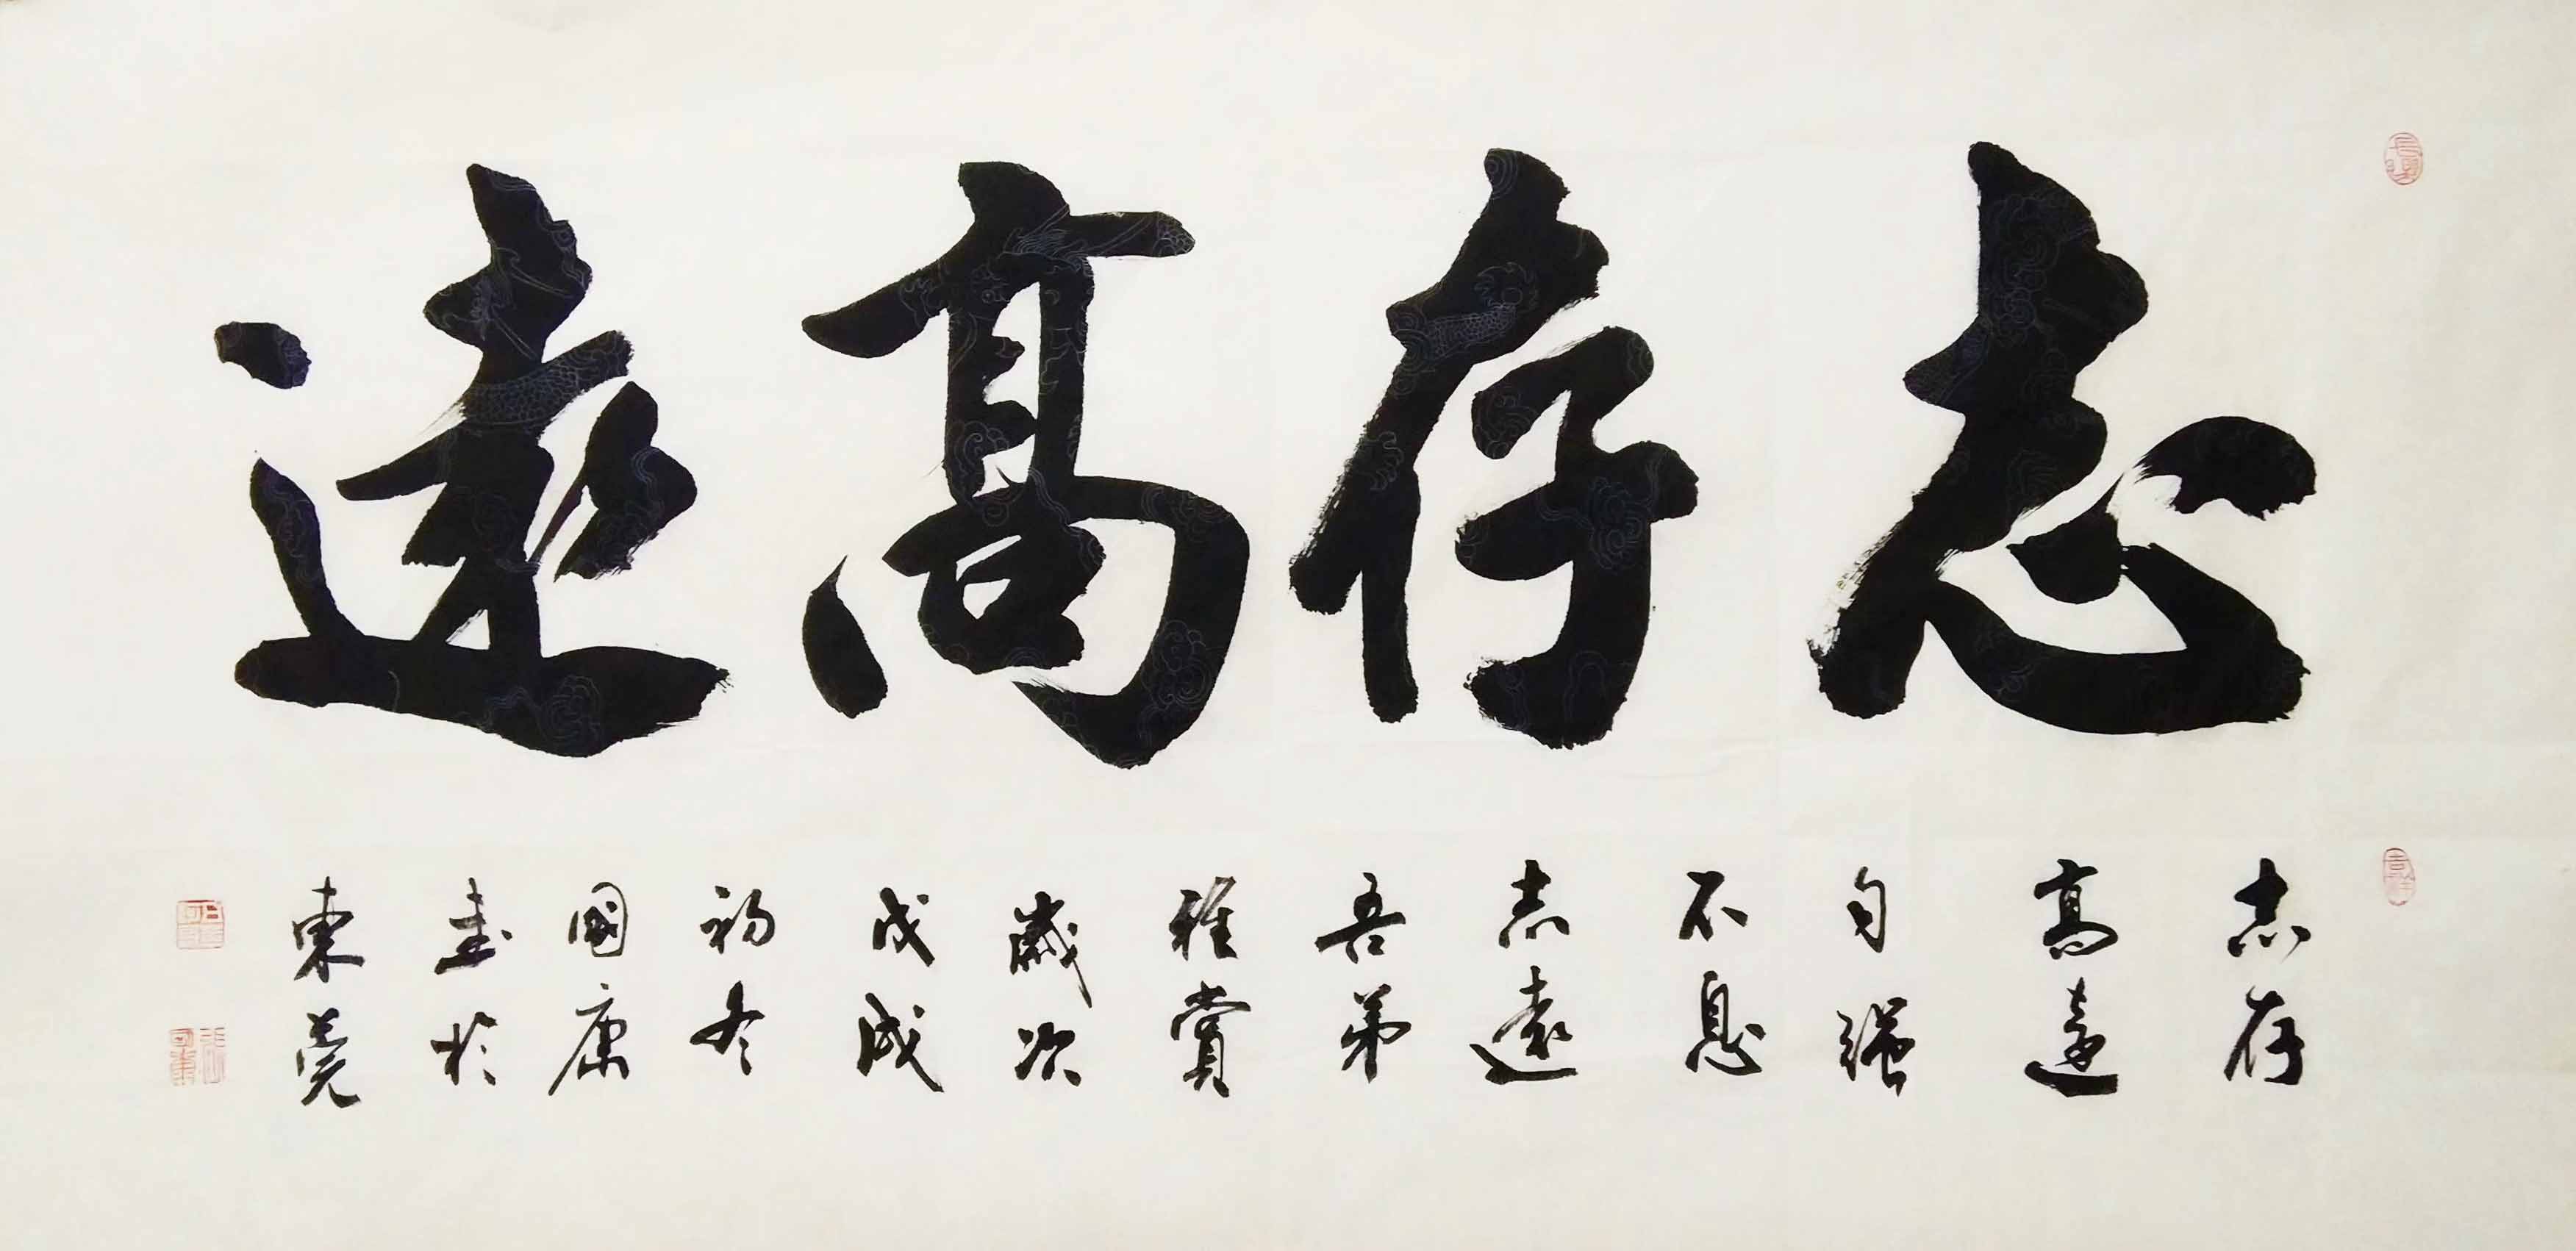 志存高遠
志存
高遠
自强
不息
志遠
吾弟
雅賞
歲次
戊戌
初冬
國康
書於
東莞